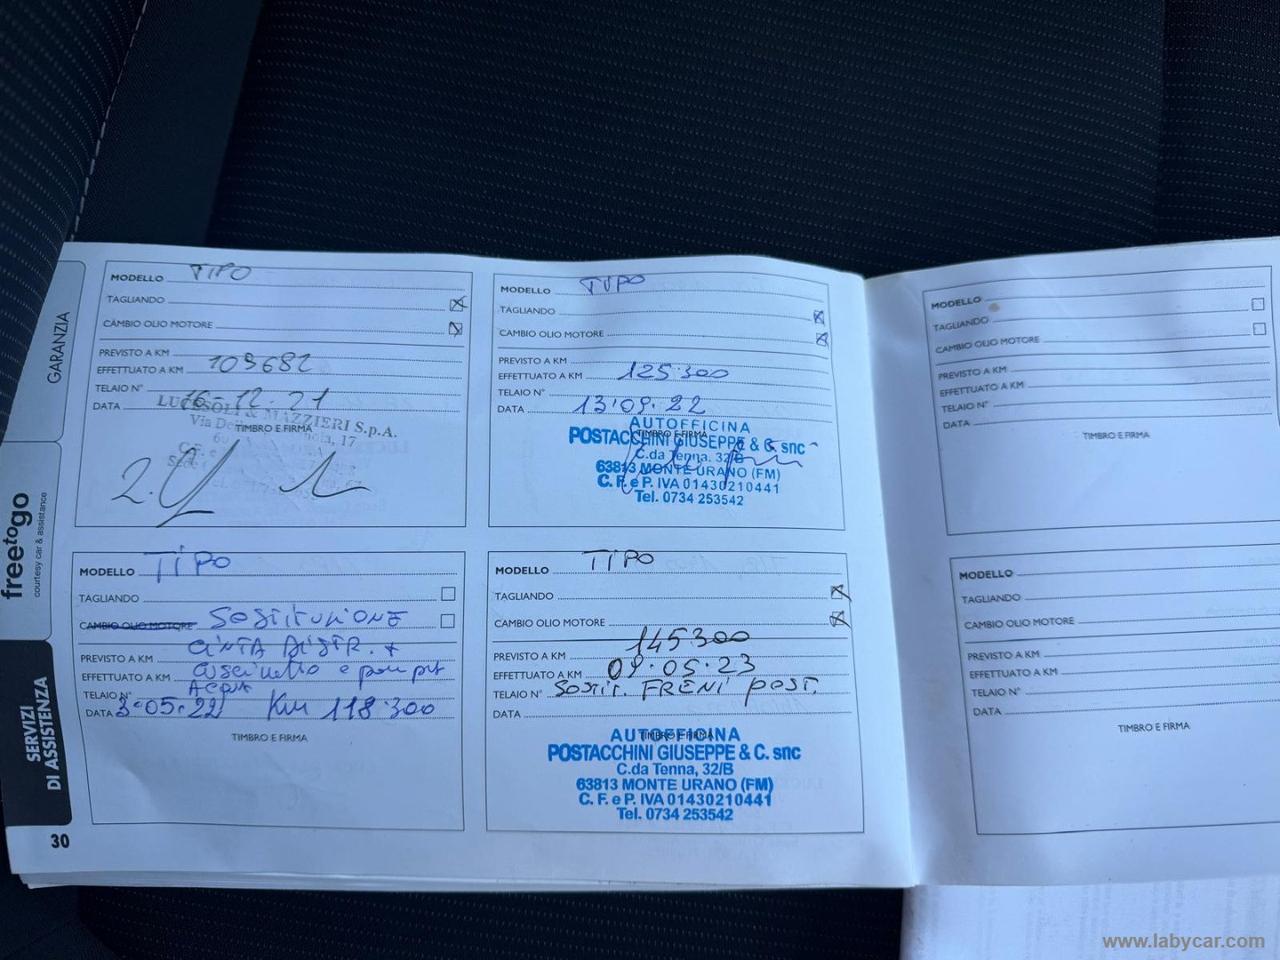 GARANZIA
freetogo
courtesy car & assistance
SERVIZI
DI ASSISTENZA
30
MODELLO TIPO
TAGLIANDO
CAMBIO OLIO MOTORE
PREVISTO A KM
EFFETTUATO A KM 109682
TELAIO N°
DATA 16-12-21
& MAZZIERI S.p.A.
TIMBRO E FIRMA
MODELLO TIPO
TAGLIANDO
CAMBIO OLIO MOTORE
PREVISTO A KM
EFFETTUATO A KM 125.300
TELAIO N°
DATA 13.09.22
AUTOFFICINA
TIMBRO E FIRMA
POSTACCHINI GIUSEPPE & C. snc
C.da Tenna, 32/B
63813 MONTE URANO (FM)
C. F. e P. IVA 01430210441
Tel. 0734 253542
MODELLO TIPO
TAGLIANDO
CAMBIO OLIO MOTORE SOSTITUZIONE
CINTA DISTR. +
PREVISTO A KM
EFFETTUATO A KM cuscinetto e pompa
ACQUA
TELAIO N°
DATA 3-05-22 KM 118.300
TIMBRO E FIRMA
MODELLO TIPO
TAGLIANDO
CAMBIO OLIO MOTORE
145.300
PREVISTO A KM
EFFETTUATO A KM 09.05.23
TELAIO N° SOSTIT. FRENI POST.
DATA
AUTOFFICINA
TIMBRO E FIRMA
POSTACCHINI GIUSEPPE & C. snc
C.da Tenna, 32/B
63813 MONTE URANO (FM)
C. F. e P. IVA 01430210441
Tel. 0734 253542
MODELLO
TAGLIANDO
CAMBIO OLIO MOTORE
PREVISTO A KM
EFFETTUATO A KM
TELAIO N°
DATA
TIMBRO E FIRMA
MODELLO
TAGLIANDO
CAMBIO OLIO MOTORE
PREVISTO A KM
EFFETTUATO A KM
TELAIO N°
DATA
TIMBRO E FIRMA
www.labycar.com